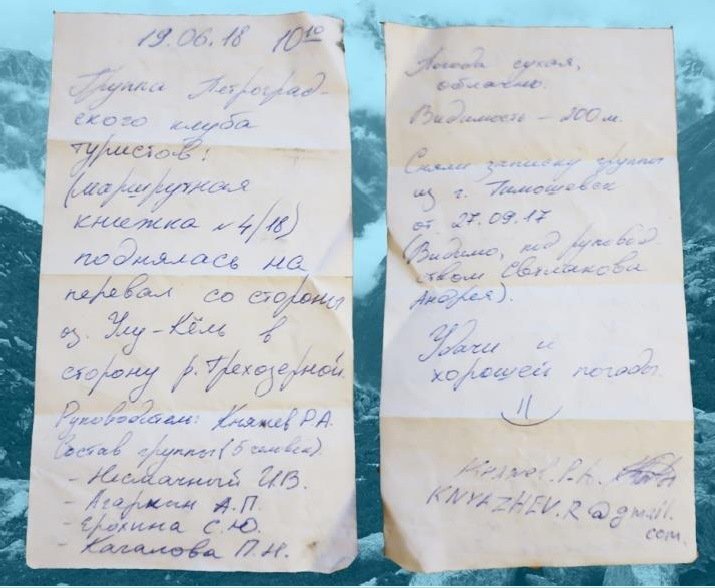 19.06.18 10¹⁰
Группа Петроград-
ского клуба
туристов:
(маршрутная
книжка №4/18)
поднялась на
перевал со стороны
оз. Улу-Кёль в
сторону р. Трехозерной.
Руководитель: Княжев Р.А.
Состав группы (5 человек)
- Несмачный И.В.
- Агаркин А.П.
- Ерохина С.Ю.
- Качалова П.Н.
Погода сухая,
облачно.
Видимость - 200 м.
Сняли записку группы
из г. Тимошевск
от 27.09.17
(Видимо, под руковод
ством Светлакова
Андрея).
Удачи и
хорошей погоды.
Княжев Р.А.
KNYAZHEV.R@gmail.
com.